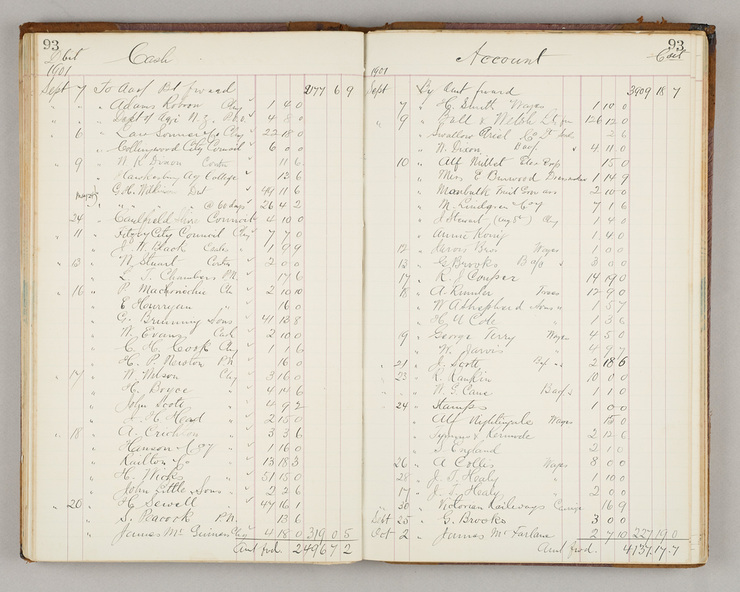 93
Debit Cash
1901
Sept 7 To Amt Bt forward 2177 6 9
" Adams Robson Chq 1 4 0
" Dept of Agri N.Z. P.O.O. 4 8 0
6 " Chq 22 18 0
" Collingwood City Council 6 0 0
9 " W R Dixon 11 6
" Hawkesbury Ag College 13 6
" C. H. Wilkinson Dft 49 11 6
" " @ 60 days 26 4 2
24 " Caulfield Shire Council 4 10 0
11 " Fitzroy City Council Chq 7 7 0
" J W Black 1 9 9
13 " W Stuart 2 0 0
" L. J. Chambers P.N. 17 6
16 " P Mackonochie 2 10 10
" E Hourigan 16 0
" G. Brunning Sons 41 13 8
" W. Evans Cash 3 10 0
" C. H. Cook Chq 1 1 6
" H. P. P.N. 16 0
17 " W. Wilson Chq 3 16 0
" H. Boyce 4 14 6
" John Scott 4 9 2
" J. H. Head 2 15 0
18 " A. Erickson 3 3 6
" Hanson & Coy 1 16 0
" Railton & Co 13 18 3
" H. Hicks 51 15 0
" John Little & Sons 2 2 6
20 " H. Sewell 47 16 1
" S. Peacock P.N. 13 6
" James Mc 4 18 0 319 0 5
Amt fwd. 2496 7 2
93
Account Credit
1901
Sept By Amt forward 3909 18 7
7 " H. Smith Wages 1 10 0
9 " Gall & Welsh 126 12 0
" Swallow Ariel 2 6
" W. Dixon 4 11 0
10 " Alf Millet 15 0
" Miss E Burwood 1 14 9
" Monbulk Fruit Growers 2 10 0
" M. Lindgren & Coy 7 1 6
" J Stewart Chq 1 4 0
" Annie König 1 4 0
12 " Kerois Bros Wages 1 0 0
13 " G. Brooks 3 0 0
17 " R J Cowper 14 19 0
18 " A. Wages 12 9 0
" W A Shepherd Sons 1 5 7
" H. U Cole 1 3 6
19 " George Terry Wages 4 5 0
" W. Jarvis
21 " J. Scott 2 18 6
23 " R. Rankin 10 0 0
" W. G. Cane 1 1 0
24 " Stamps 1 0 0
" Alf Nightingale Wages 15 0
" & Kermode 2 12 6
" S England 2 1 0
26 " A Colles Wages 8 0 0
28 " J. T. Healy 1 10 0
17 " J. T. Healy 2 0 0
30 " Victorian Railways 16 9
Sept 25 " G. Brooks 3 0 0
Oct 2 " James McFarlane 2 7 10 227 19 0
Amt fwd. 4137.17.7